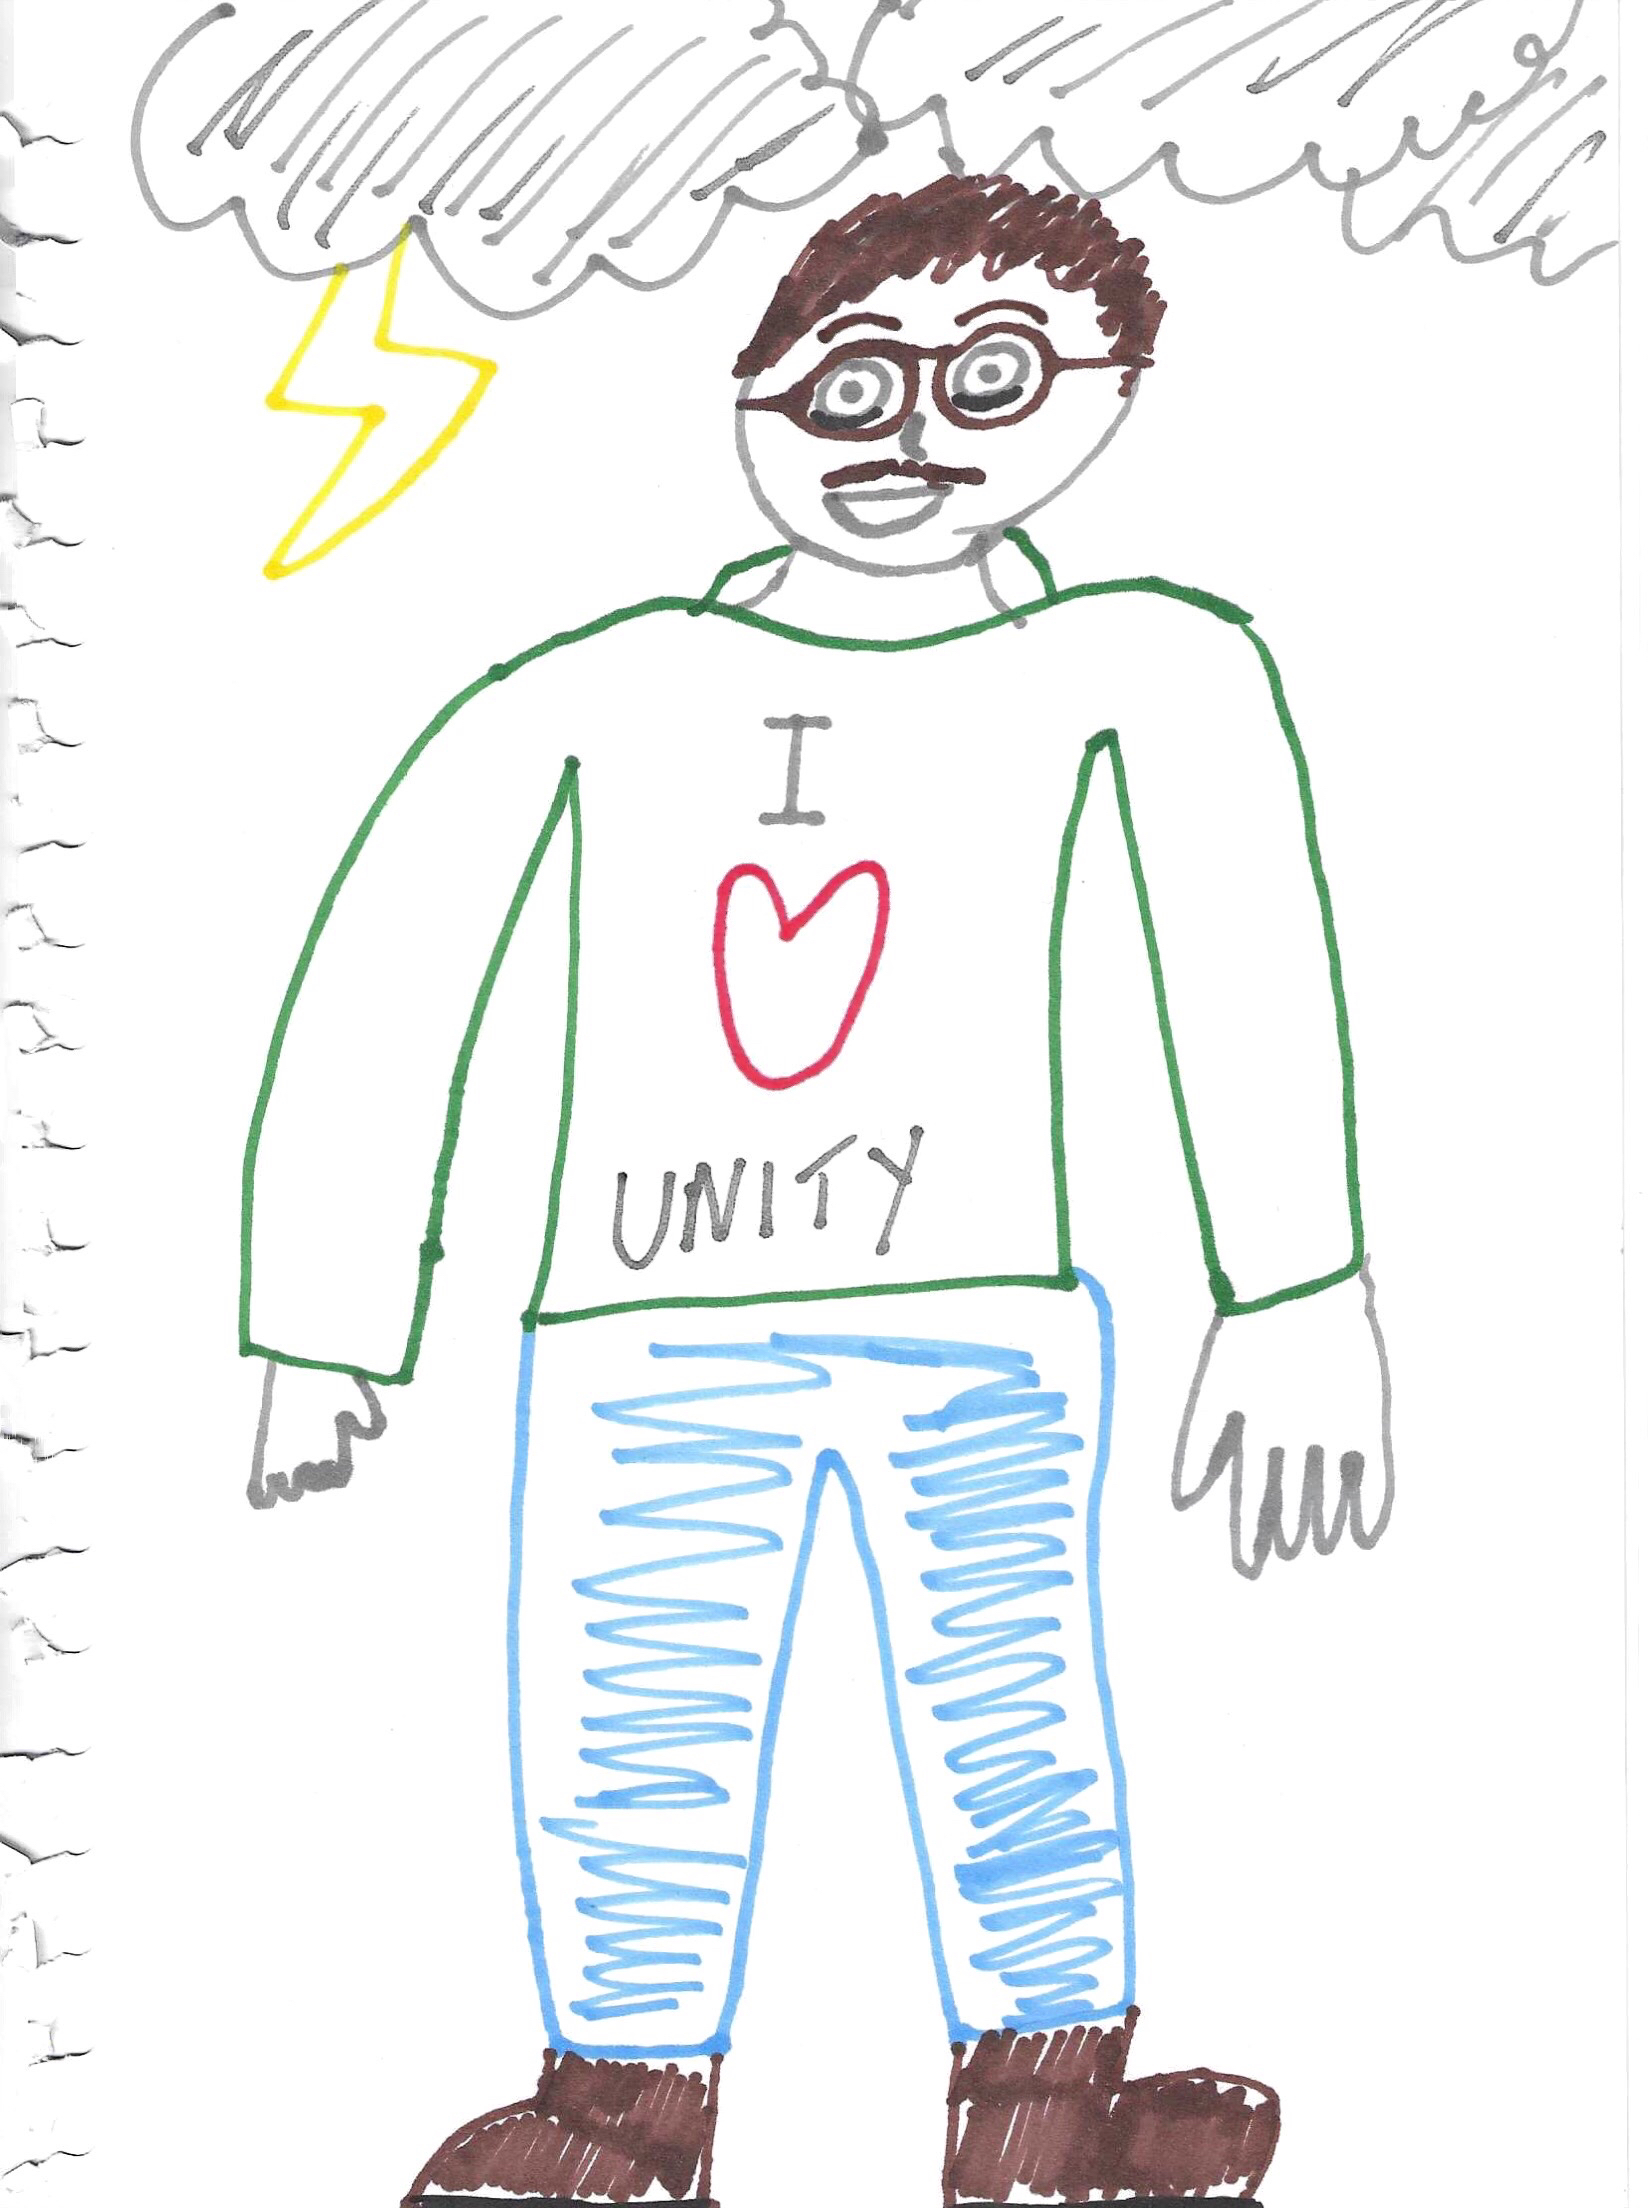 I
UNITY